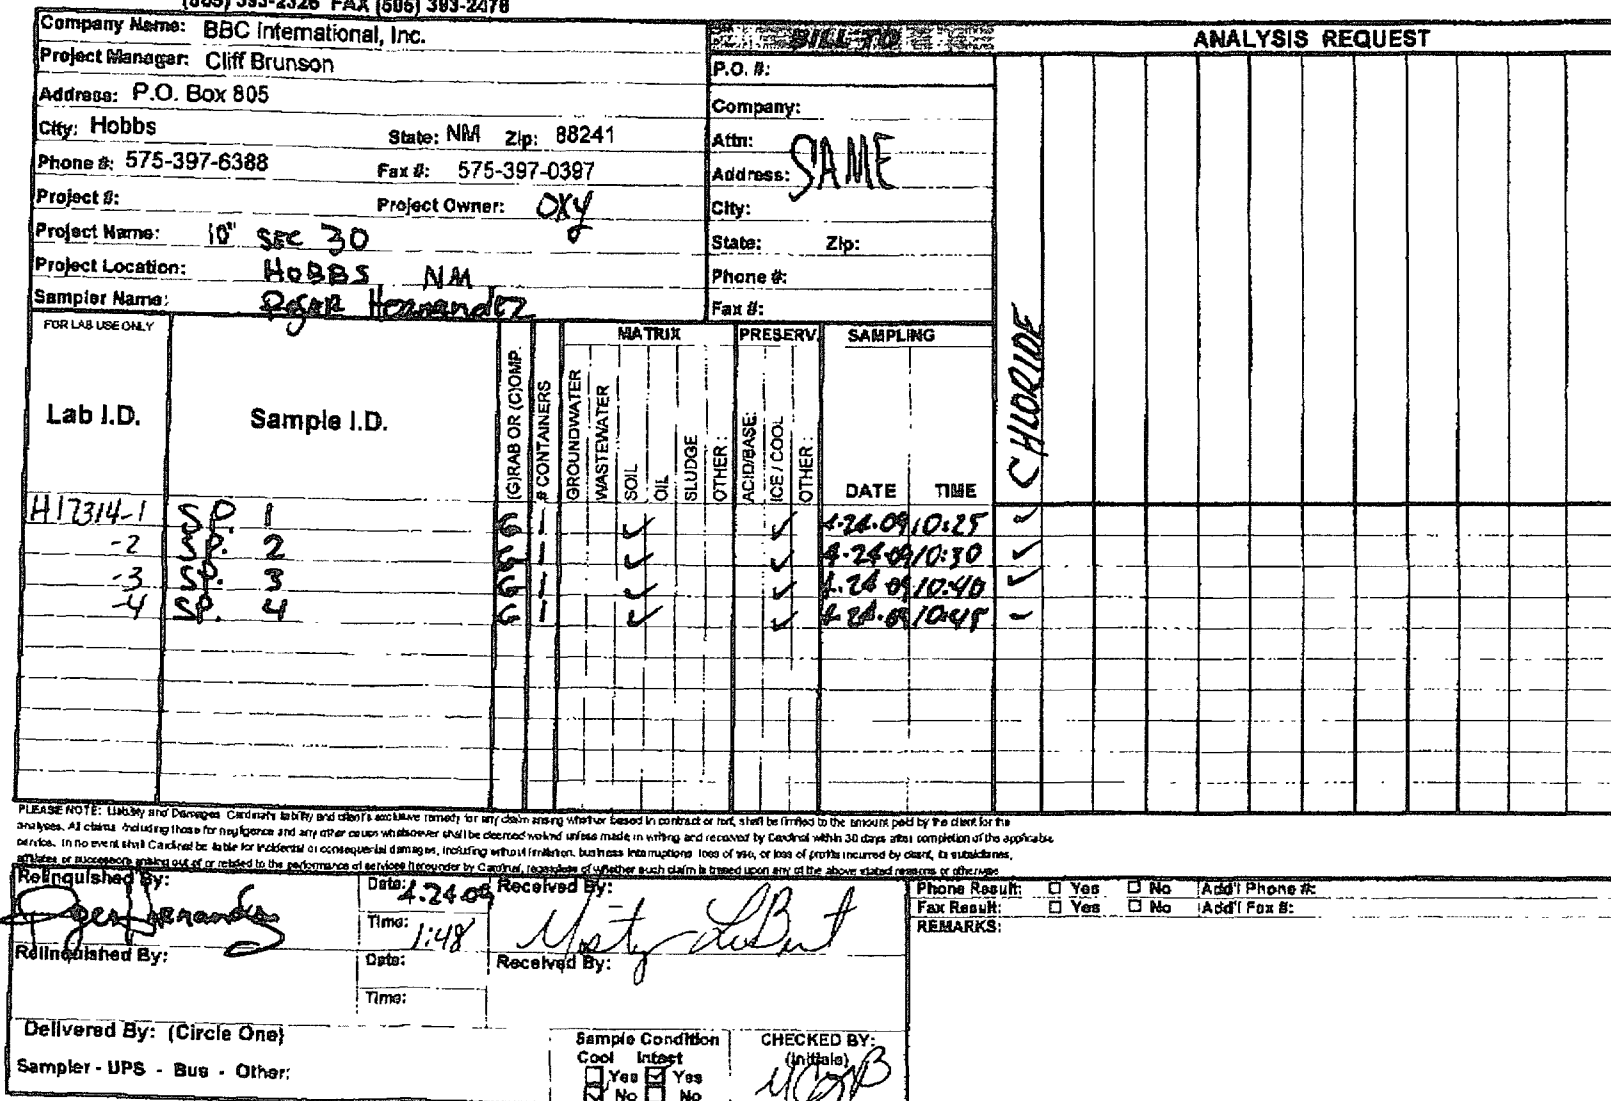 (505) 393-2326 FAX (505) 393-2476
Company Name: BBC International, Inc.
BILL TO
ANALYSIS REQUEST
Project Manager: Cliff Brunson
P.O. #:
Address: P.O. Box 805
Company:
City: Hobbs State: NM Zip: 88241
Attn:
SAME
Phone #: 575-397-6388 Fax #: 575-397-0397
Address:
Project #: Project Owner: OXY
City:
Project Name: 10" SEC 30
State: Zip:
Project Location: HOBBS NM
Phone #:
Sampler Name: Hernandez
Fax #:
FOR LAB USE ONLY
MATRIX PRESERV. SAMPLING
Lab I.D. Sample I.D. (G)RAB OR (C)OMP. # CONTAINERS GROUNDWATER WASTEWATER SOIL OIL SLUDGE OTHER : ACID/BASE: ICE / COOL OTHER : DATE TIME CHLORIDE
H17314-1 S.P. 1 G 1 ✓ ✓ 4-24-09 10:25 ✓
-2 S.P. 2 G 1 ✓ ✓ 4-24-09 10:30 ✓
-3 S.P. 3 G 1 ✓ ✓ 4-24-09 10:40 ✓
-4 S.P. 4 G 1 ✓ ✓ 4-24-09 10:45 ✓
PLEASE NOTE: Liability and Damages. Cardinal's liability and client's exclusive remedy for any claim arising whether based in contract or tort, shall be limited to the amount paid by the client for the
analyses. All claims including those for negligence and any other cause whatsoever shall be deemed waived unless made in writing and received by Cardinal within 30 days after completion of the applicable
service. In no event shall Cardinal be liable for incidental or consequential damages, including without limitation, business interruptions, loss of use, or loss of profits incurred by client, its subsidiaries,
affiliates or successors arising out of or related to the performance of services hereunder by Cardinal, regardless of whether such claim is based upon any of the above stated reasons or otherwise
Relinquished By: Date: 4-24-09 Received By:
Hernandez Time: 1:48 Misty
Phone Result: Yes No Add'l Phone #:
Fax Result: Yes No Add'l Fax #:
REMARKS:
Relinquished By: Date: Received By:
Time:
Delivered By: (Circle One)
Sample Condition
CHECKED BY:
Cool Intact
(Initials)
Sampler - UPS - Bus - Other:
Yes Yes
No No